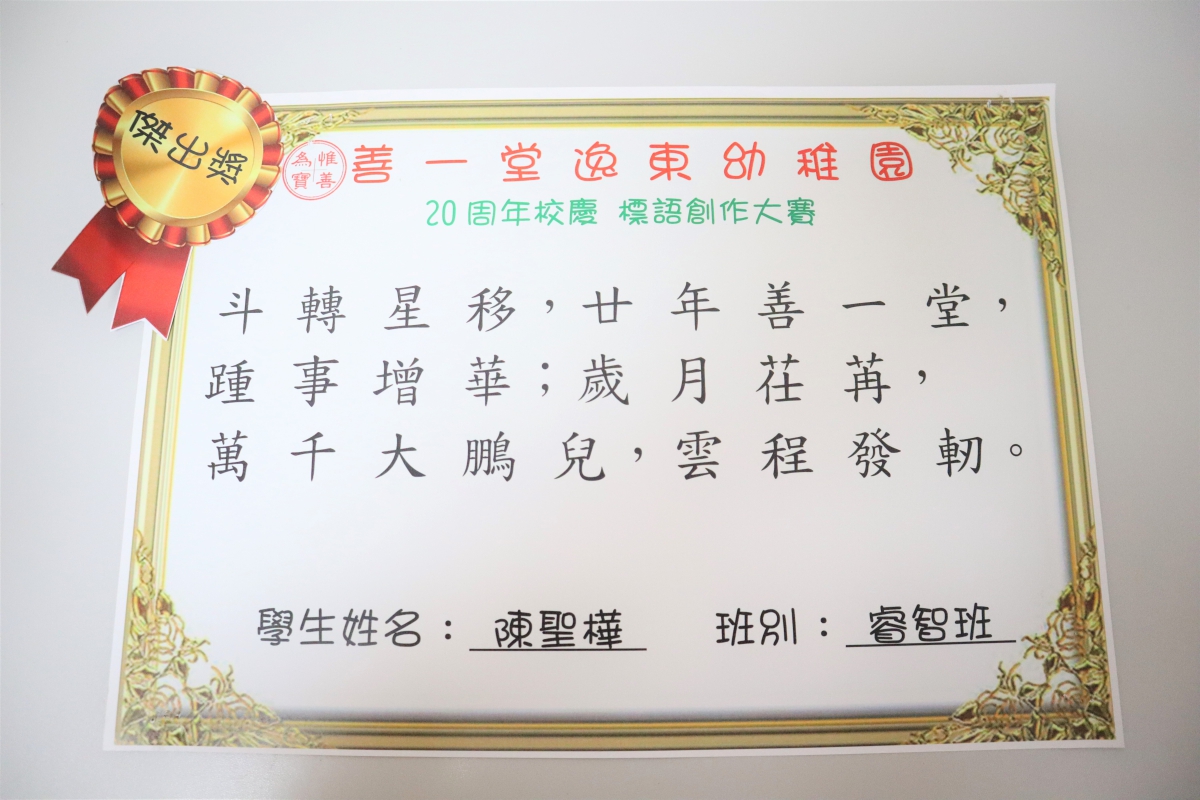 傑出獎
惟善
為寶
善一堂逸東幼稚園
20周年校慶 標語創作大賽
斗轉星移，廿年善一堂，
踵事增華；歲月荏苒，
萬千大鵬兒，雲程發軔。
學生姓名：陳聖樺 班別：睿智班